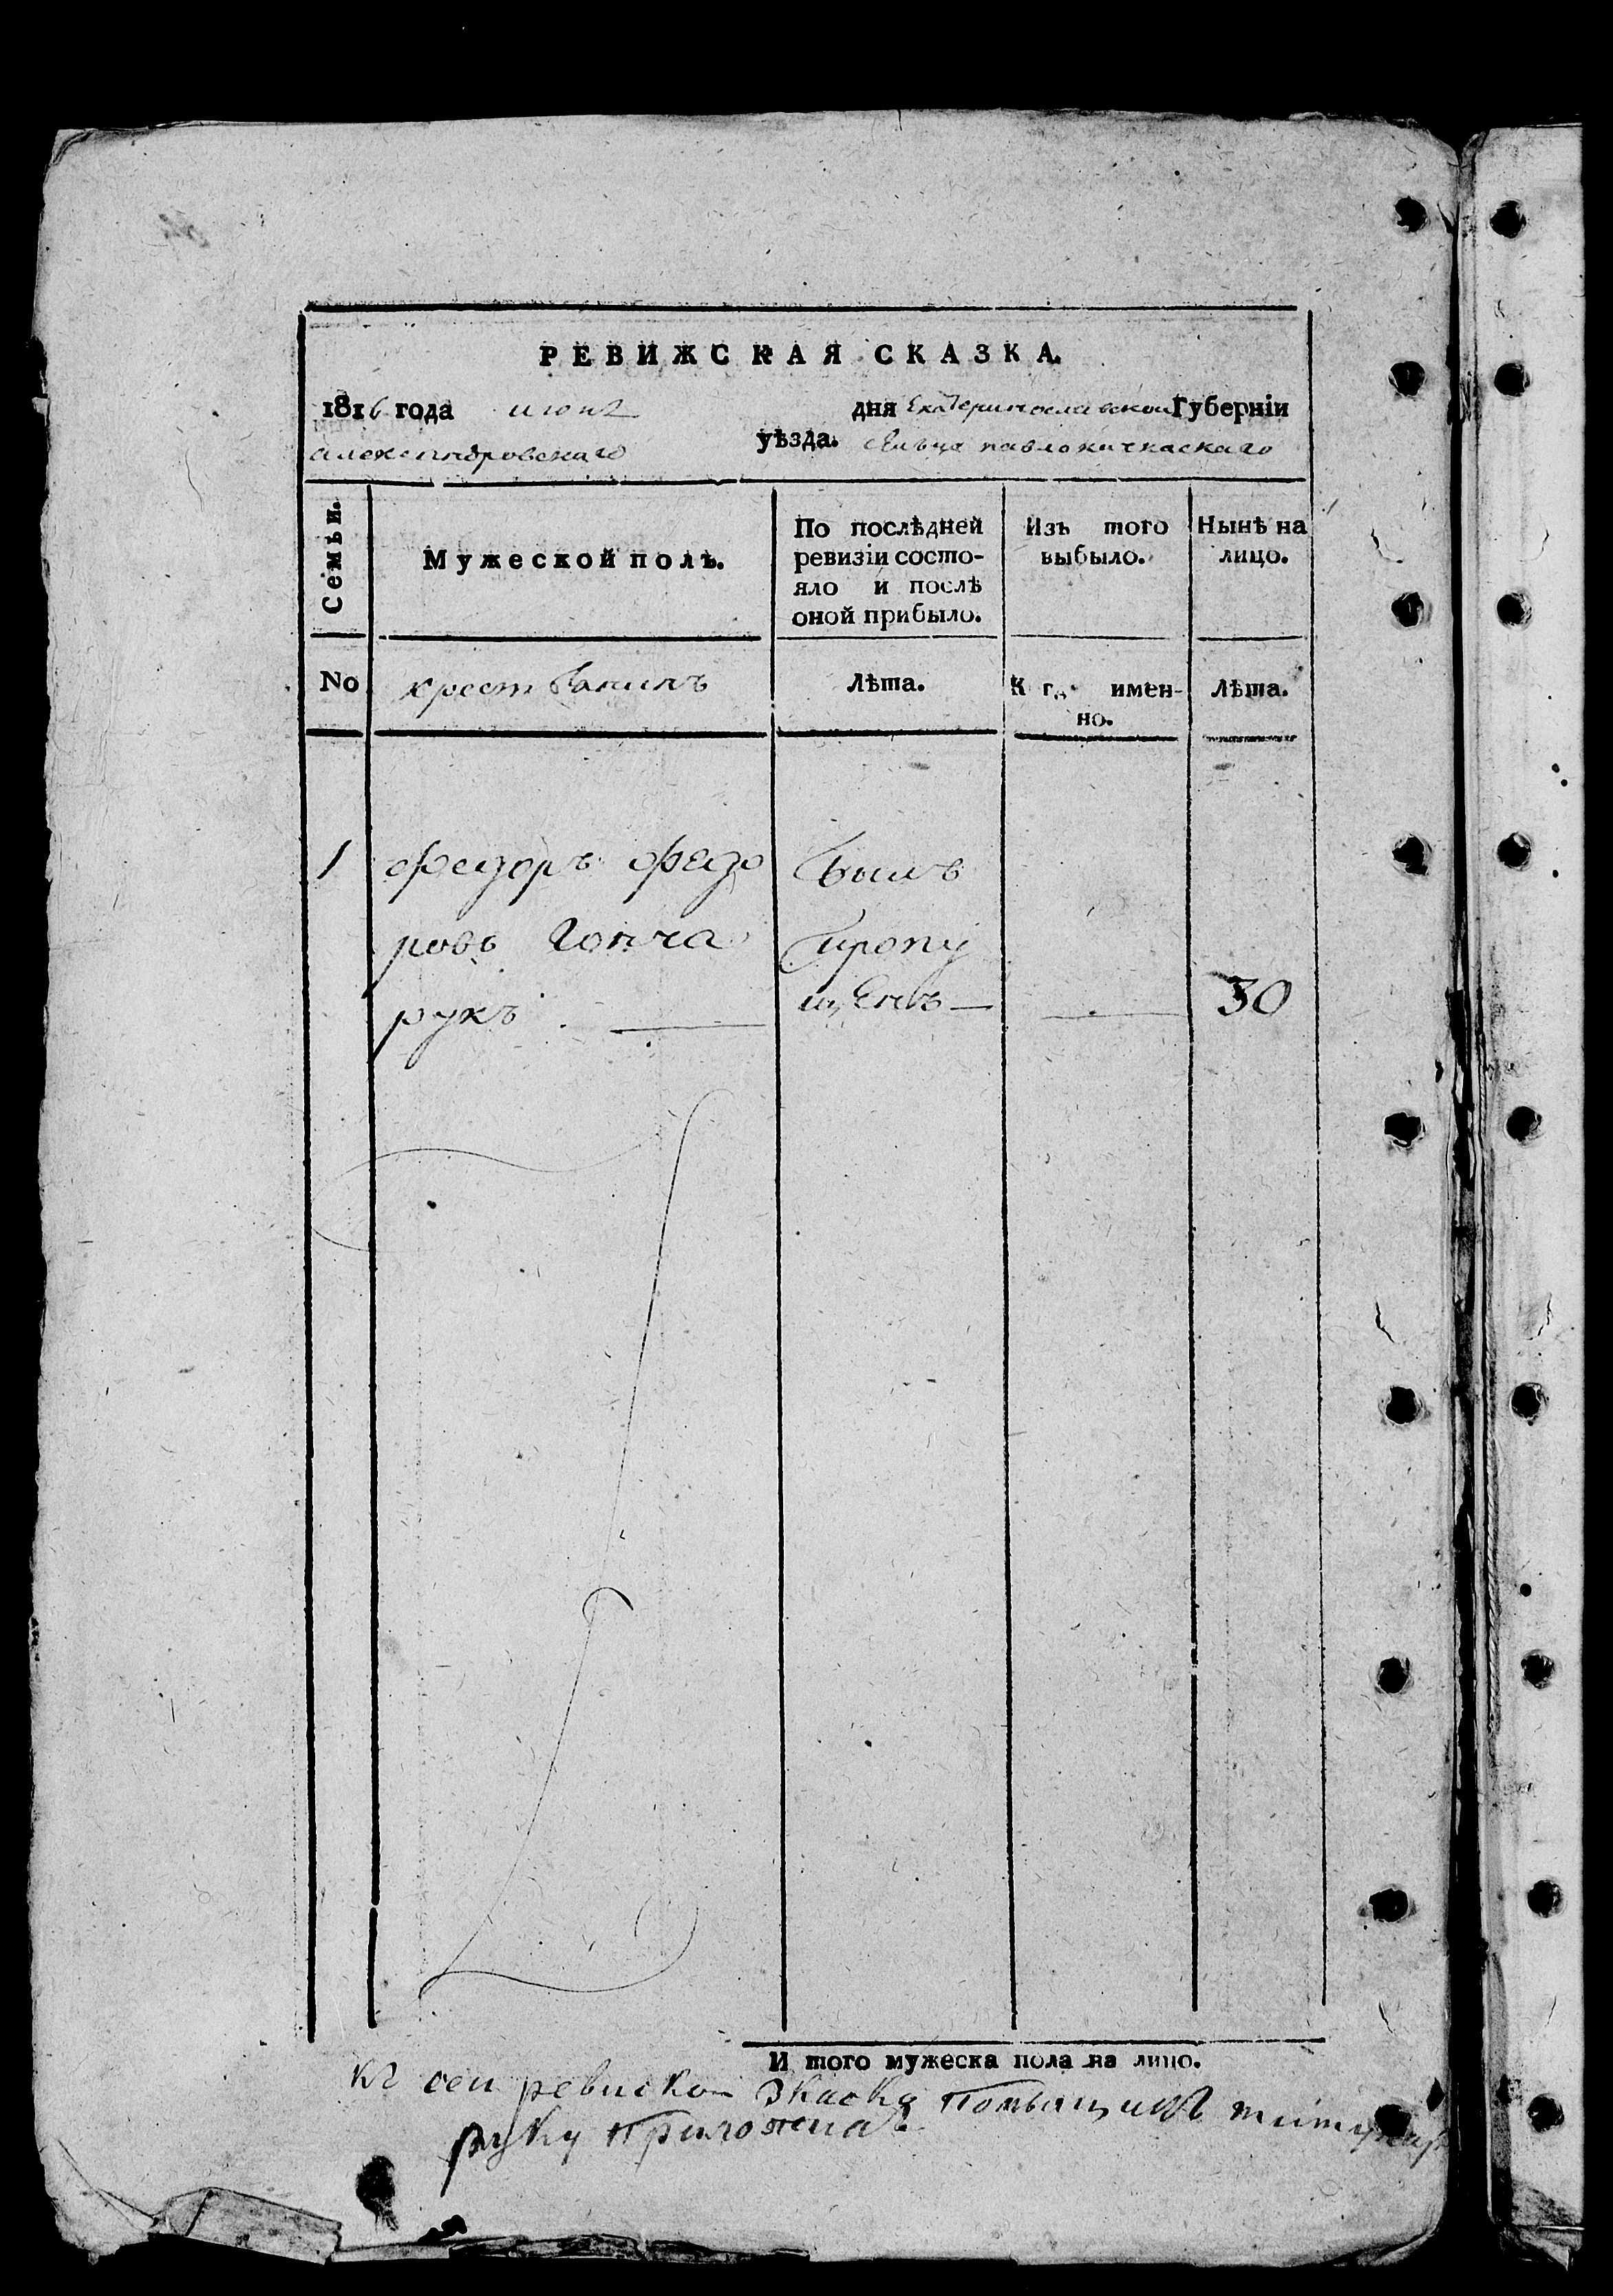 РЕВИЖСКАЯ СКАЗКА.
1816 года июня дня Екатеринославской Губернїи
александровскаго уѣзда. сельца павлокичкаскаго
Семьи. Мужеской полъ. По послѣдней ревизїи состояло и послѣ оной прибыло. Изъ того выбыло. Нынѣ на лицо.
No крестьянинъ Лѣта. Когда именно. Лѣта.
1 Федоръ Федо Былъ
ровъ Гонча пропу
рукъ щенъ — 30
И того мужеска пола на лицо.
къ сеи ревиской Зкаски помѣщикъ
руку приложилъ